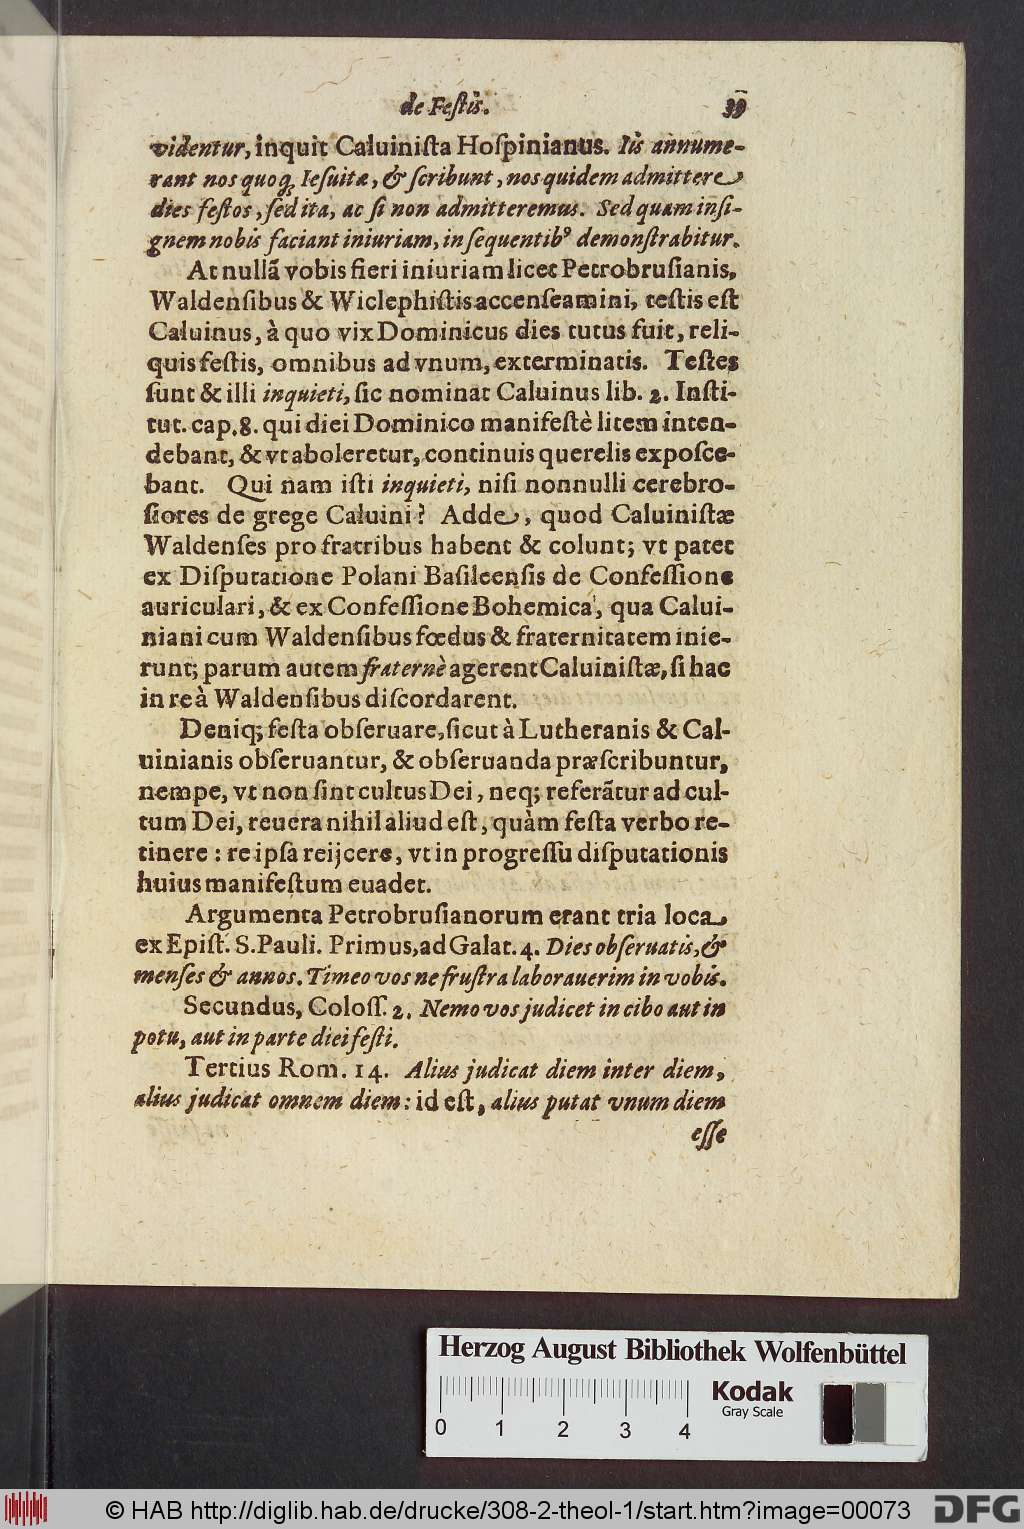 de Feſtis. 39
videntur, inquit Caluiniſta Hoſpinianus. Iis annume-
rant nos quoq; Ieſuitæ, & ſcribunt, nos quidem admittere
dies feſtos, ſed ita, ac ſi non admitteremus. Sed quam inſi-
gnem nobis faciant iniuriam, in ſequentibꝰ demonſtrabitur.
At nullã vobis fieri iniuriam licet Petrobruſianis,
Waldenſibus & Wiclephiſtis accenſeamini, teſtis eſt
Caluinus, à quo vix Dominicus dies tutus fuit, reli-
quis feſtis, omnibus ad vnum, exterminatis. Teſtes
ſunt & illi inquieti, ſic nominat Caluinus lib. 2. Inſti-
tut. cap. 8. qui diei Dominico manifeſtè litem inten-
debant, & vt aboleretur, continuis querelis expoſce-
bant. Qui nam iſti inquieti, niſi nonnulli cerebro-
ſiores de grege Caluini? Adde, quod Caluiniſtæ
Waldenſes pro fratribus habent & colunt; vt patet
ex Diſputatione Polani Baſileenſis de Confeſſione
auriculari, & ex Confeſſione Bohemica, qua Calui-
niani cum Waldenſibus fœdus & fraternitatem inie-
runt; parum autem fraternè agerent Caluiniſtæ, ſi hac
in re à Waldenſibus diſcordarent.
Deniq; feſta obſeruare, ſicut à Lutheranis & Cal-
uinianis obſeruantur, & obſeruanda præſcribuntur,
nempe, vt non ſint cultus Dei, neq; referãtur ad cul-
tum Dei, reuera nihil aliud eſt, quàm feſta verbo re-
tinere: re ipſa reijcere, vt in progreſſu diſputationis
huius manifeſtum euadet.
Argumenta Petrobruſianorum erant tria loca
ex Epiſt. S. Pauli. Primus, ad Galat. 4. Dies obſeruatis, &
menſes & annos. Timeo vos ne fruſtra laborauerim in vobis.
Secundus, Coloſſ. 2. Nemo vos judicet in cibo aut in
potu, aut in parte diei feſti.
Tertius Rom. 14. Alius judicat diem inter diem,
alius judicat omnem diem: id eſt, alius putat vnum diem
eſſe
Herzog August Bibliothek Wolfenbüttel
0 1 2 3 4
Kodak
Gray Scale
© HAB http://diglib.hab.de/drucke/308-2-theol-1/start.htm?image=00073
DFG